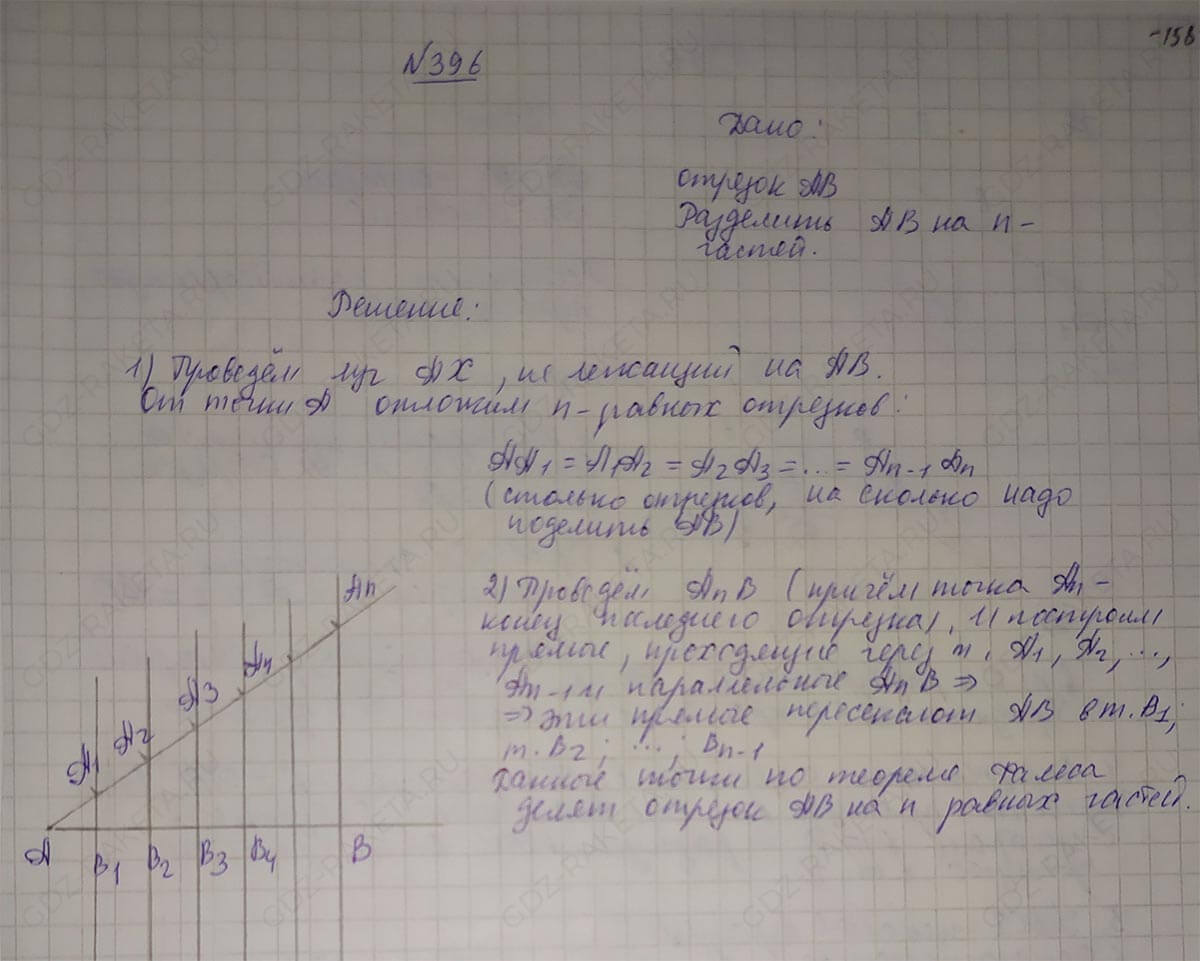 -158
№396
Дано:
отрезок AB
Разделить AB на n-
частей.
Решение:
1) Проведём луч AX, не лежащий на AB.
От точки A отложим n-равных отрезков:
AA₁ = A₁A₂ = A₂A₃ = ... = Aₙ₋₁Aₙ
(столько отрезков, на сколько надо
поделить AB)
2) Проведём AₙB (причём точка Aₙ -
конец последнего отрезка), и построим
прямые, проходящие через т. A₁, A₂, ...,
Aₙ₋₁ и параллельные AₙB ⇒
⇒ эти прямые пересекают AB в т. B₁;
т. B₂; ...; Bₙ₋₁
Данные точки по теореме Фалеса
делят отрезок AB на n равных частей.
Aₙ
A₄
A₃
A₂
A₁
A B₁ B₂ B₃ B₄ B
GDZ-RAKETA.RU